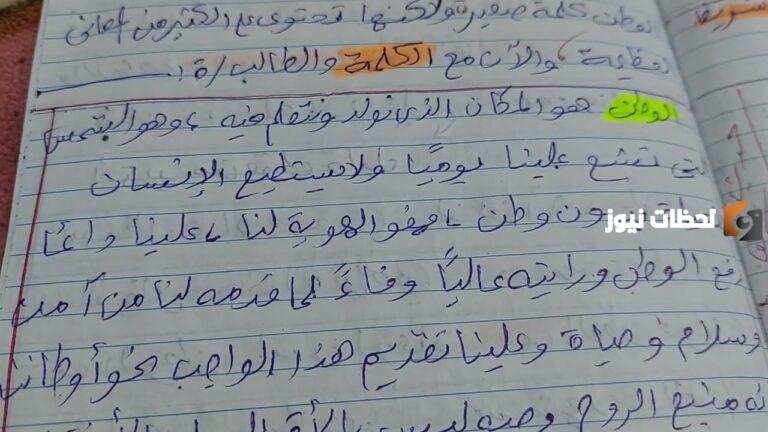 الوطن كلمة صغيرة ولكنها تحتوي على الكثير من المعاني
العظيمة والآن مع الكلمة والطالب/ة :
الوطن هو المكان الذي نولد ونتعلم فيه ، وهو الشمس
التي تشع علينا يوميًا ولا يستطيع الإنسان
بدون وطن ، فهو الهوية لنا ، علينا دائمًا
رفع الوطن ورايته عاليًا وفاءً لما قدمه لنا من أمن
وسلام وحياة وعلينا تقديم هذا الواجب نحو أوطاننا
منبع الروح
لحظات نيوز